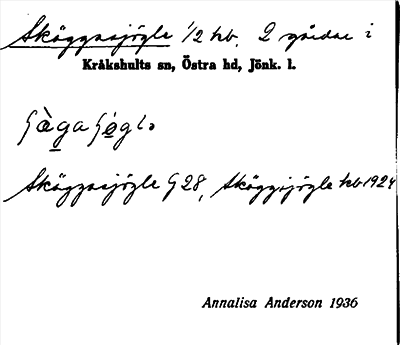 Skäggesjögle 1/2 hb. 2 gårdar i
Kråkshults sn, Östra hd, Jönk. l.
Skäggesjögle G 28, Skäggsjögle hb 1924
Annalisa Anderson 1936